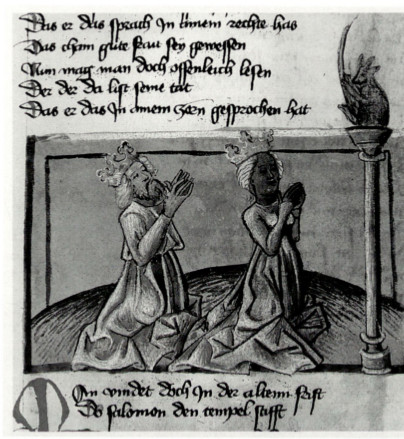 Das er das sprach In einem rechte has
Das chain gute frau sey gewessen
Nun mag man doch offenleich lesen
Der der da list seine tat
Das er das In einem zorn gesprochen hat
Man vindet doch In der altenn
Do salomon den tempel stifft